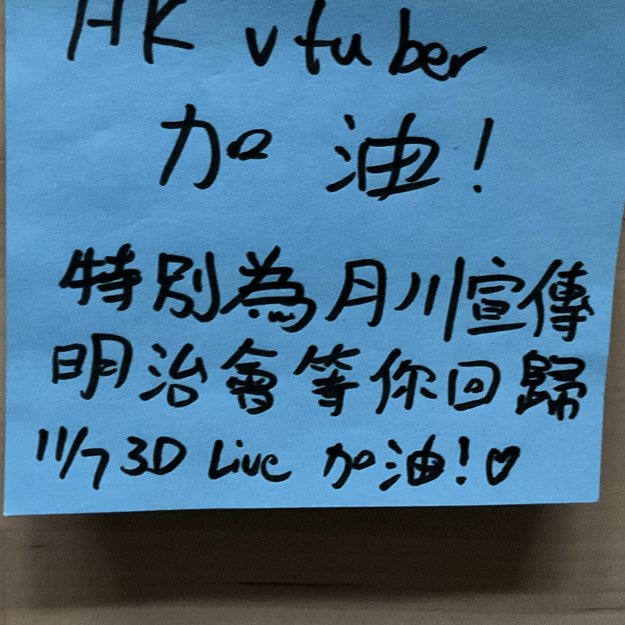 HK vtuber
加油!
特別為月川宣傳
明治會等你回歸
11/7 3D Live 加油!♡